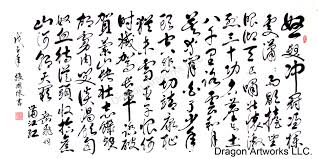 怒髮冲冠憑欄
處瀟瀟雨歇抬望
眼仰天長嘯壯懷激
烈三十功名塵與土
八千里路雲和月莫
等閒白了少年
頭空悲切靖康恥
猶未雪臣子恨何
時滅駕長車踏破
賀蘭山缺壯志飢餐
胡虜肉笑談渴飲匈
奴血待從頭收拾舊
山河朝天闕 岳飛词
满江红
戊子年
Dragon Artworks LLC.